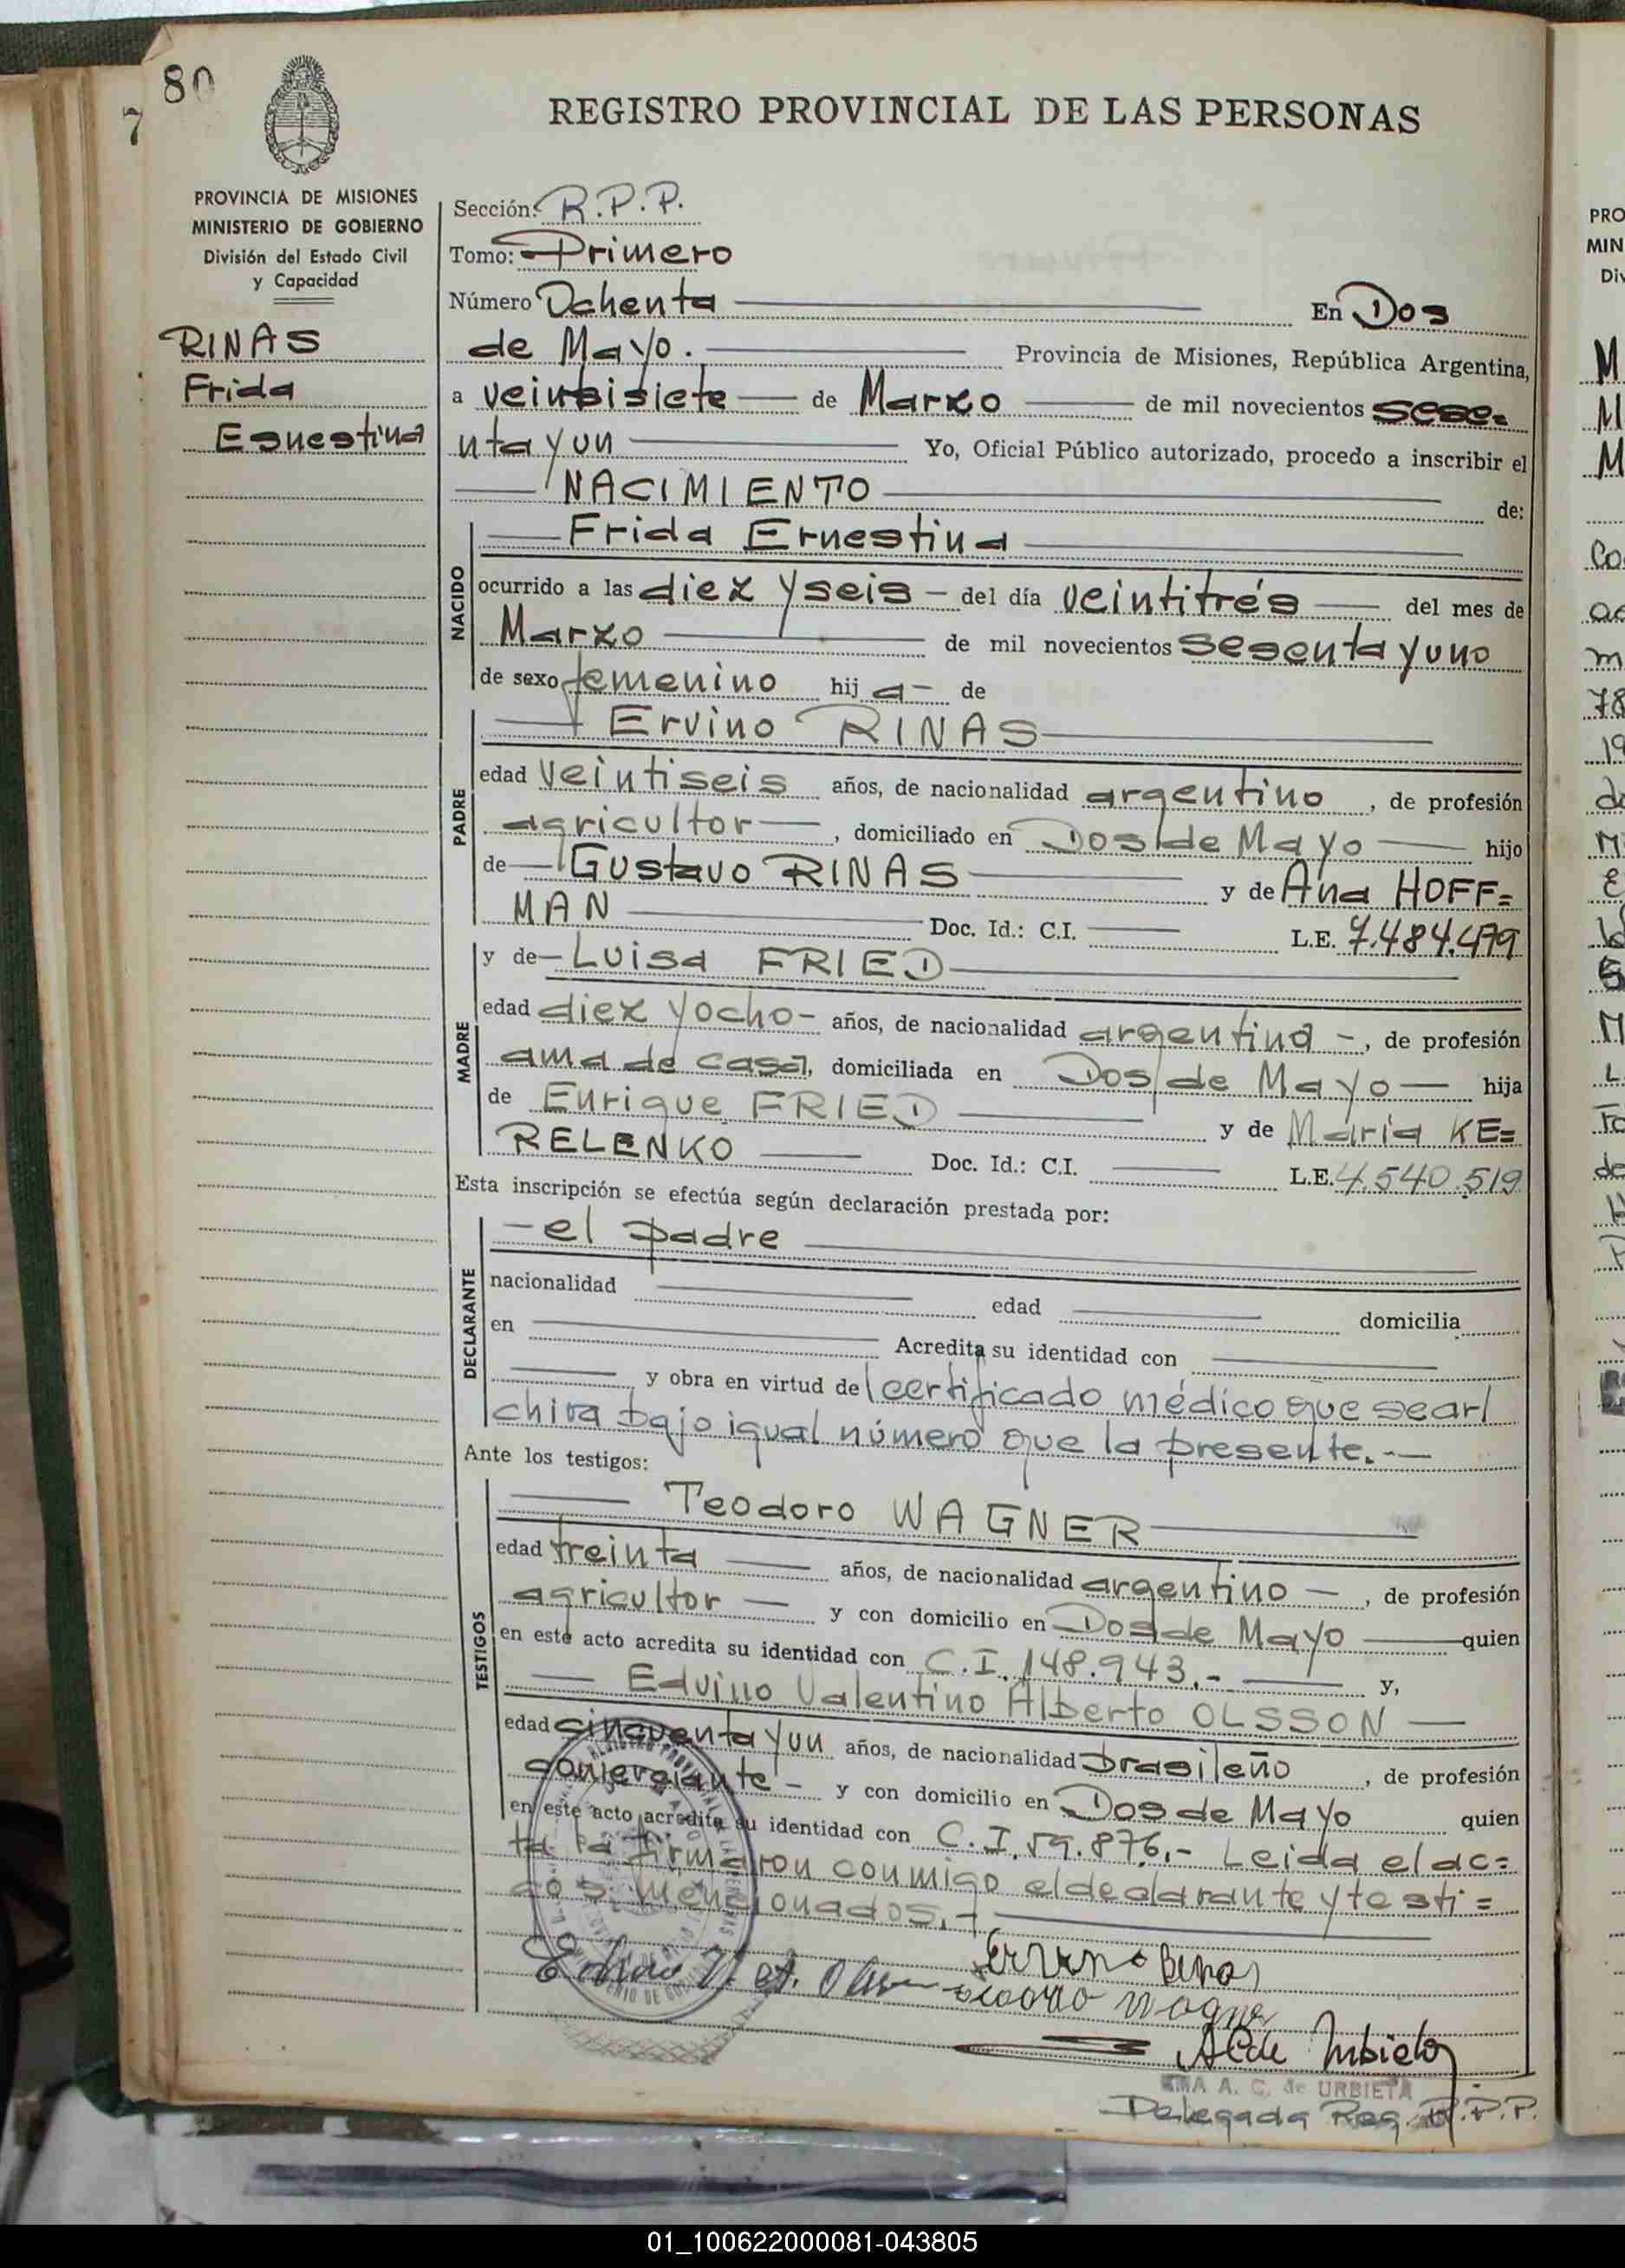 80
7
REGISTRO PROVINCIAL DE LAS PERSONAS
PROVINCIA DE MISIONES
MINISTERIO DE GOBIERNO
División del Estado Civil
y Capacidad
RINAS
Frida
Ernestina
Sección: R.P.P.
Tomo: Primero
Número Ochenta En Dos
de Mayo. Provincia de Misiones, República Argentina,
a veintisiete de Marzo de mil novecientos sese=
nta y un Yo, Oficial Público autorizado, procedo a inscribir el
NACIMIENTO de:
NACIDO
Frida Ernestina
ocurrido a las diez y seis - del día veintitrés del mes de
Marzo de mil novecientos sesenta y uno
de sexo femenino hij a - de
PADRE
Ervino RINAS
edad veintiseis años, de nacionalidad argentino, de profesión
agricultor, domiciliado en Dos de Mayo hijo
de Gustavo RINAS y de Ana HOFF=
MAN Doc. Id.: C.I. L.E. 7.484.479
MADRE
y de Luisa FRIED
edad diez y ocho - años, de nacionalidad argentina -, de profesión
ama de casa, domiciliada en Dos de Mayo hija
de Enrique FRIED y de María KE=
RELENKO Doc. Id.: C.I. L.E. 4.540.519
Esta inscripción se efectúa según declaración prestada por:
DECLARANTE
- el padre
nacionalidad edad domicilia
en Acredita su identidad con
y obra en virtud del certificado médico que se ar/
chiva bajo igual número que la presente.-
Ante los testigos:
TESTIGOS
Teodoro WAGNER
edad treinta años, de nacionalidad argentino, de profesión
agricultor y con domicilio en Dos de Mayo quien
en este acto acredita su identidad con C.I. 148.943.- y,
Edvino Valentino Alberto OLSSON
edad cincuenta y un años, de nacionalidad brasileño, de profesión
comerciante - y con domicilio en Dos de Mayo quien
en este acto acredita su identidad con C.I. 59.876.- Leida el ac=
ta la firmaron conmigo el declarante y testi=
gos mencionados.-
Ervino Rinas
Teodoro Wagner
A. C. de URBIETA
Delegada Reg. R.P.P.
01_100622000081-043805